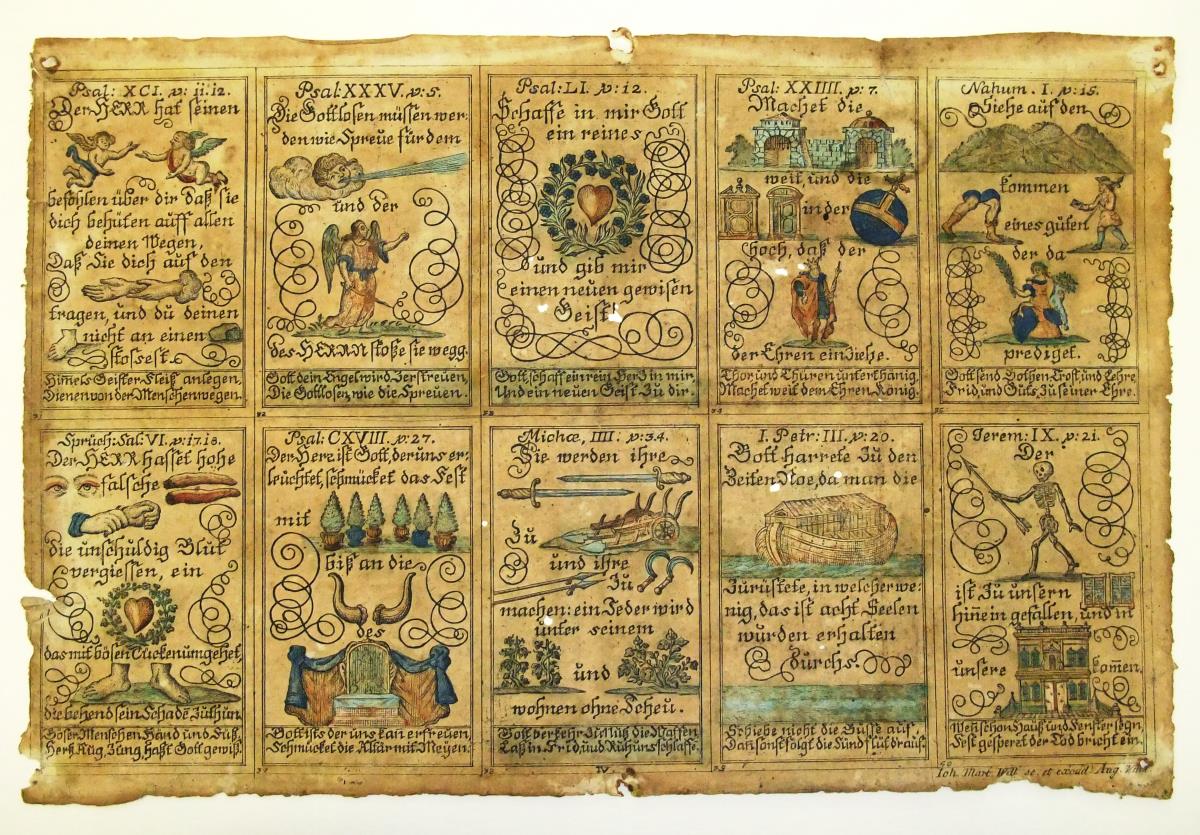 Psal: XCI. v: 11.12.
Der HERR hat seinen
befohlen über dir Daß sie
dich behüten auff allen
deinen Wegen,
Daß Sie dich auf den
tragen, und dü deinen
nicht an einen
stossest.
Him̄els Geister Fleiß anlegen,
Dienen von der Menschen wegen.
31
Psal: XXXV. v: 5.
Die Gottlosen müssen wer-
den wie Spreue für dem
und der
des HERRN stoße sie wegg.
Gott dein Engel wird Zerstreuen,
Die Gottlosen, wie die Spreuen.
32
Psal: LI. v: 12.
Schaffe in mir Gott
ein reines
und gib mir
einen neuen gewisen
Geist.
Gott, schaff ein rein Herz in mir,
Und ein neuen Geist Zu dir.
33
Psal: XXIIII. v: 7.
Machet die
weit, und die
in der
hoch, daß der
der Ehren einZiehe.
Thor und Thüren unterthänig,
Machet weit dem Ehren König.
34
Nahum. I. v: 15.
Siehe auf den
kommen
eines guten
der da
prediget.
Gott send Bothen, Trost, und Lehre
Frid, und Guts, Zu seiner Ehre.
35
Sprüch: Sal: VI. v: 17.18.
Der HERR hasset hohe
falsche
die unschuldig Blut
vergiessen, ein
das mit bösen Tücken umgehet,
die behend sein Schadē Zu thun.
Böser Menschen Händ und Füß,
Herß, Aug, Zung, haßt Gott gewiß.
Psal: CXVIII. v: 27.
Der Herr ist Gott, der uns er-
leuchtet, schmücket das Fest
mit
biß an die
des
Gott ists der uns kan erfreuen,
Schmücket die Altär mit Meyen.
37
Michæ, IIII. v: 3.4.
Sie werden ihre
Zu
und ihre
Zu
machen: ein Jeder wird
unter seinem
und
wohnen ohne Scheu.
Gott verkehr Zu Nuß die Waffen
Laß in Frid, und Ruh uns schlaffē.
38
I. Petr: III. v: 20.
Gott harrete Zu den
Zeiten Noe, da man die
Zurüstete, in welcher we-
nig, das ist acht Seelen
wurden erhalten
durchs.
Schiebe nicht die Busse auf
Dan sonst folgt die Sündflut drauf.
39
Jerem: IX. v: 21.
Der
ist Zu unsern
hin̄ein gefallen, und in
unsere
kom̄en.
Wenschon Hauß und Fenster seyn,
Fest gesperet der Tod bricht ein.
40
IV
Joh. Mart. Will sc. et excud. Aug. Vind.